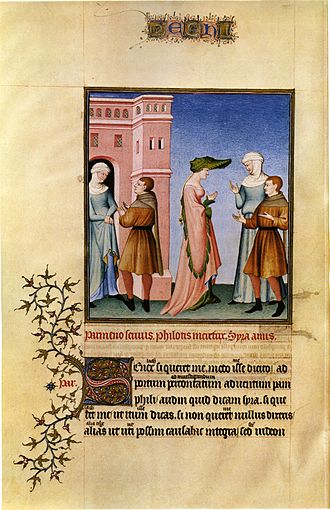 parmeno seruus. philotis meretrix. Syra anus.
par.
Senex si queret me. modo isse dicito ad
portum percontatum aduentum pam
phili. audin quid dicam syra. si que
ret me ut ti tum dicas. si non queret nullus dixeris
alias ut uti possim causa hac integra. sed uideon